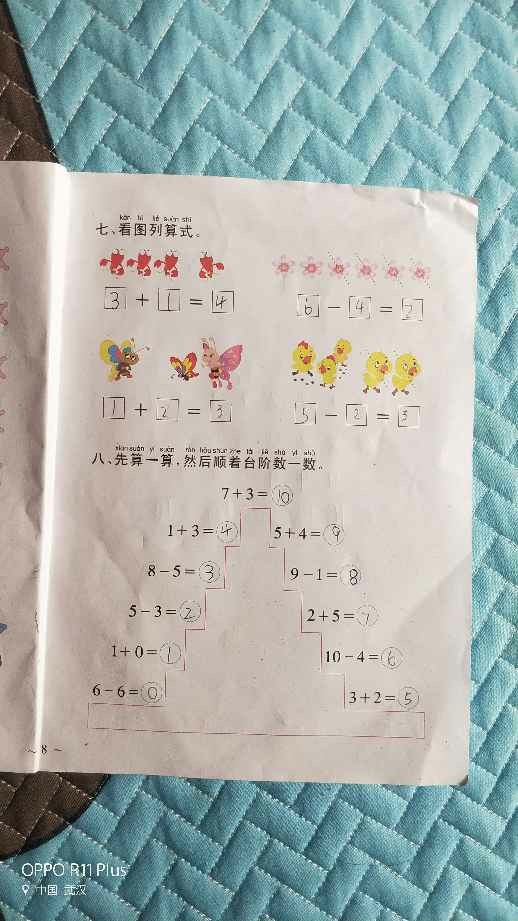 kàn tú liè suàn shì
七、看图列算式。
3 + 1 = 4
6 - 4 = 2
1 + 2 = 3
5 - 2 = 3
xiān suàn yí suàn rán hòu shùn zhe tái jiē shǔ yì shǔ
八、先算一算，然后顺着台阶数一数。
7+3=10
1+3=4 5+4=9
8-5=3 9-1=8
5-3=2 2+5=7
1+0=1 10-4=6
6-6=0 3+2=5
~ 8 ~
OPPO R11 Plus
中国 武汉